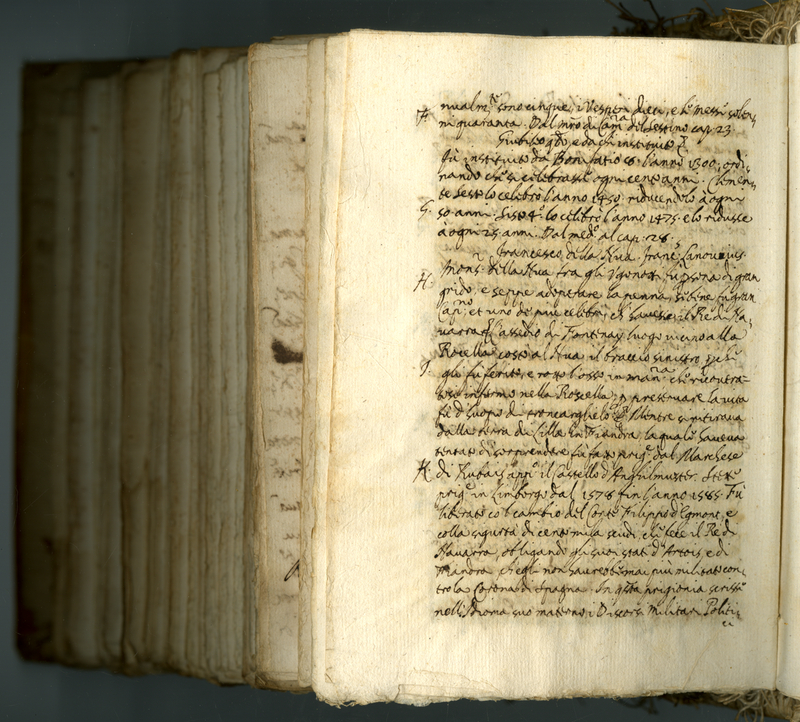 nualm.te sono cinque, i Vesperi dieci, e le messe solen,
ni quaranta. Dal m.ro di Cam.ra del Sestino cap. 23.
Giubileo q.do, e da chi instituito
Fù instituito da Bonifatio 8. l'anno 1300; ordi,
nando che si celebrasse ogni cento anni. Clemen,
te Sesto lo celebrò l'anno 1450. riducendolo à ogni
G. 50. anni. Sisto 4.o lo celebrò l'anno 1475. e lo ridusse
à ogni 25. anni. Dal med.o al cap. 28.
Francesco della Nua. Fran.s Lanovius.
Mons. della Nua tra gli Vgonotti fù persona di gran
H. grido, e seppe adoperare la penna, sì bene fù gran
Cap.no et uno de più celebri, che havesse il Re di Na,
uarra. L'assedio di Fontenay luogo vicino alla
Rocella costò al Nua il braccio sinistro, perche
I. gli fu ferito, e rotto l'osso in man.ra che ricontra-
tosi infermo nella Roccella, p preservare la vita
fù d'huopo di troncarglielo. Mentre si ritirava
dalla terra di Lilla in Fiandra, la quale haveva
tentato di sorprendere fù fatto prig.e dal Marchese
K. di Rubais app.o il Castello d'Anghilmunster. Stette
prig.e in Limborgo dal 1578 fin l'anno 1585. Fù
liberato co'l cambio del Conte Filippo d'Egmont, e
colla sigurtà di cento mila scudi, che fece il Re di
Navarra, obligando gli suoi stati d'Artois, e di
Fiandra, ch'egli non haverebbe mai più militato con,
tro la Corona di Spagna. In q.sta prigionia scrisse
nell'Idioma suo materno i Discorsi Militari Politi,
ci